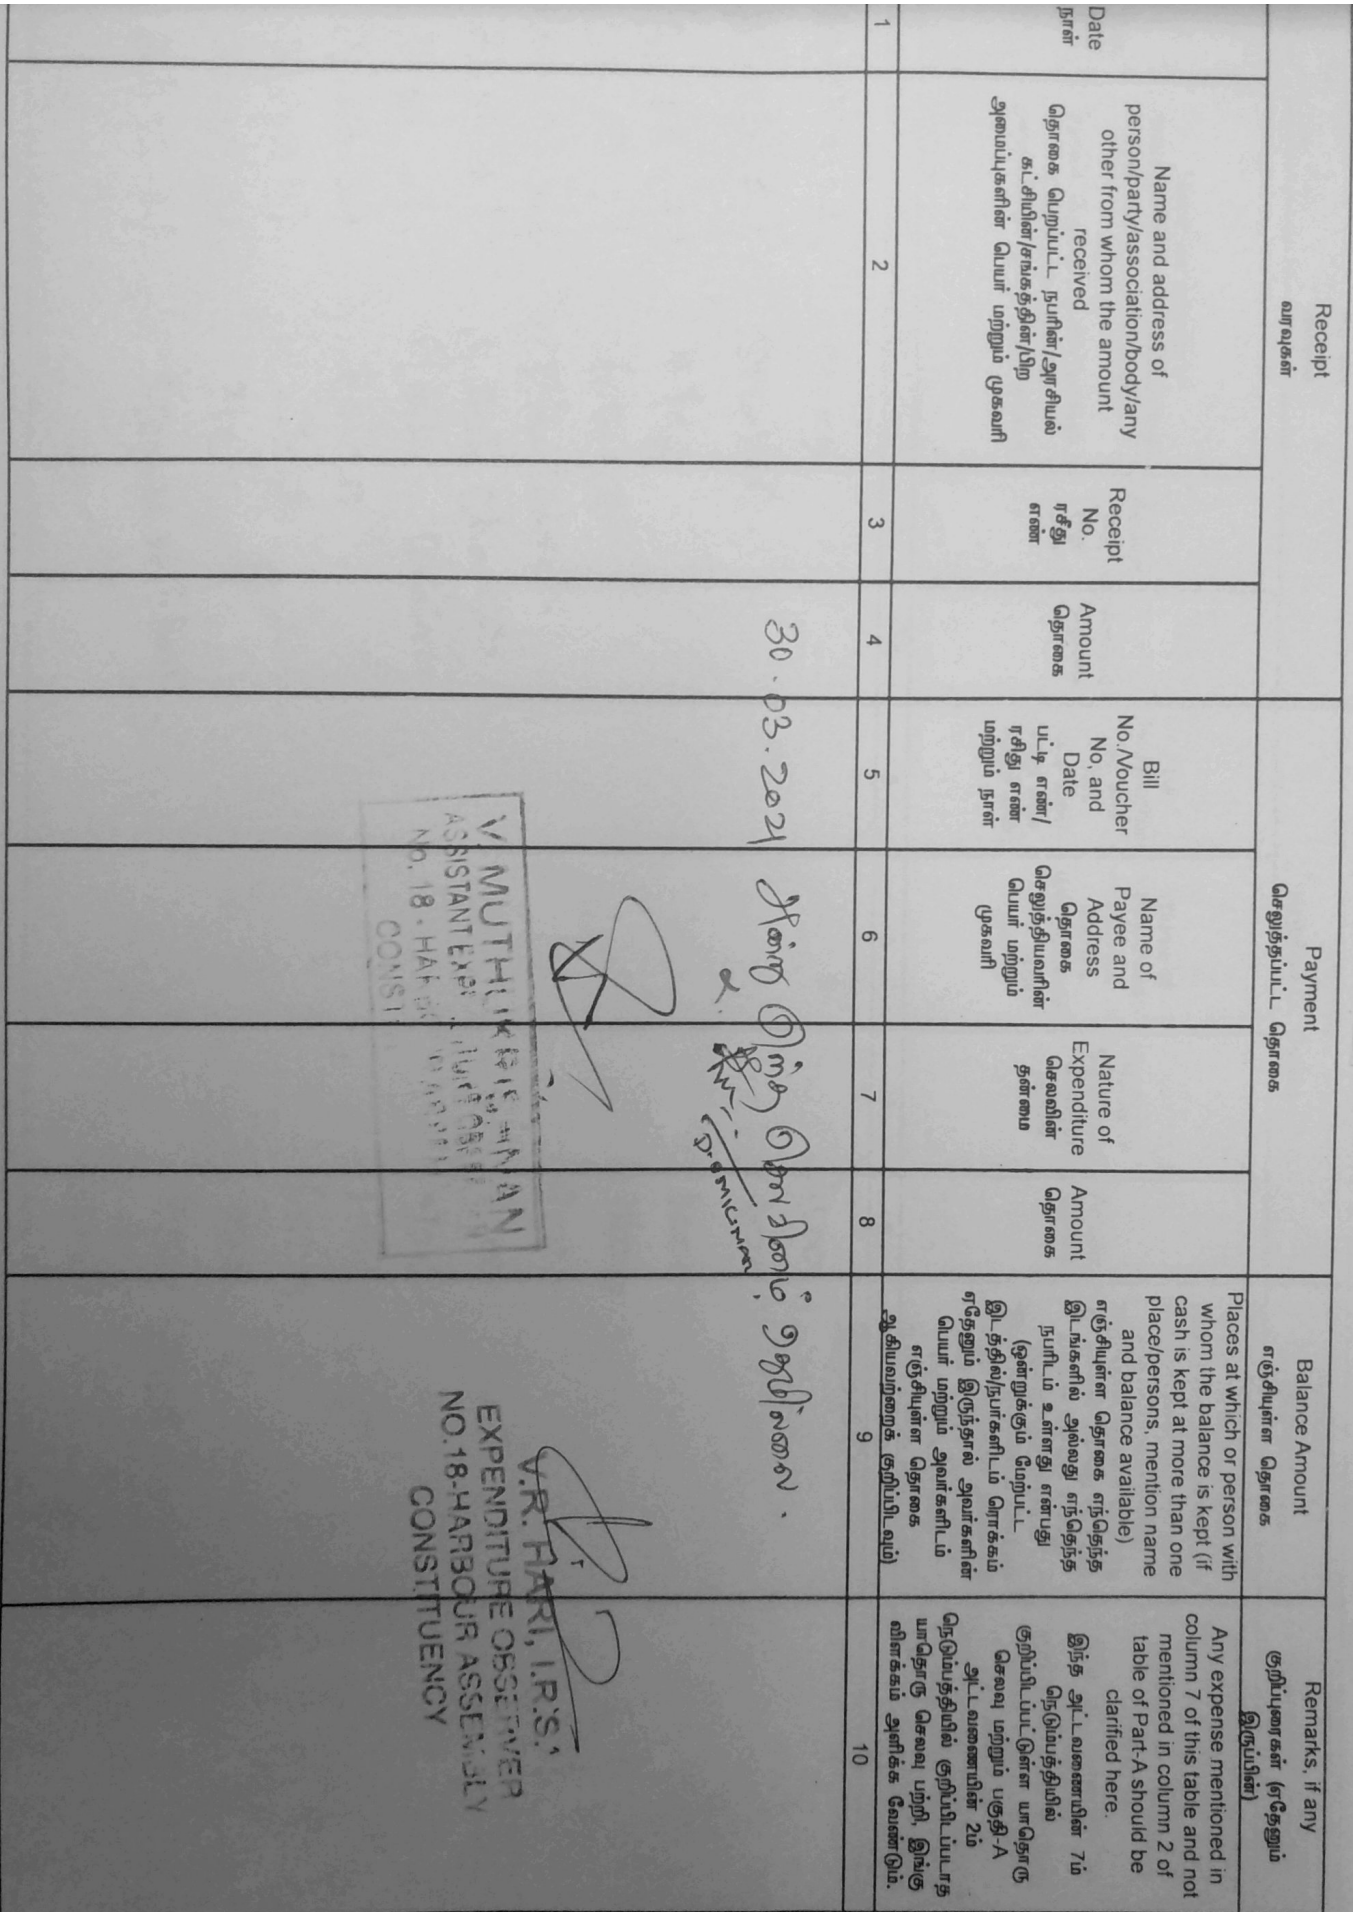 Receipt
வரவுகள்
Payment
செலுத்தப்பட்ட தொகை
Balance Amount
எஞ்சியுள்ள தொகை
Remarks, if any
குறிப்புரைகள் (ஏதேனும்
இருப்பின்)
Date
நாள்
Name and address of
person/party/association/body/any
other from whom the amount
received
தொகை பெறப்பட்ட நபரின்/அரசியல்
கட்சியின்/சங்கத்தின்/பிற
அமைப்புகளின் பெயர் மற்றும் முகவரி
Receipt
No.
ரசீது
எண்
Amount
தொகை
Bill
No./Voucher
No, and
Date
பட்டி எண்/
ரசிது எண்
மற்றும் நாள்
Name of
Payee and
Address
தொகை
செலுத்தியவரின்
பெயர் மற்றும்
முகவரி
Nature of
Expenditure
செலவின்
தன்மை
Amount
தொகை
Places at which or person with
whom the balance is kept (if
cash is kept at more than one
place/persons, mention name
and balance available)
எஞ்சியுள்ள தொகை எந்தெந்த
இடங்களில் அல்லது எந்தெந்த
நபரிடம் உள்ளது என்பது
(ஒன்றுக்கும் மேற்பட்ட
இடத்தில்/நபர்களிடம் ரொக்கம்
ஏதேனும் இருந்தால் அவர்களின்
பெயர் மற்றும் அவர்களிடம்
எஞ்சியுள்ள தொகை
ஆகியவற்றைக் குறிப்பிடவும்)
Any expense mentioned in
column 7 of this table and not
mentioned in column 2 of
table of Part-A should be
clarified here.
இந்த அட்டவணையின் 7ம்
நெடும்பத்தியில்
குறிப்பிடப்பட்டுள்ள யாதொரு
செலவு மற்றும் பகுதி-A
அட்டவணையின் 2ம்
நெடும்பத்தியில் குறிப்பிடப்படாத
யாதொரு செலவு பற்றி, இங்கு
விளக்கம் அளிக்க வேண்டும்.
1 2 3 4 5 6 7 8 9 10
30.03.2021 அன்று எந்த செலவினமும் இல்லை.
V. MUTHUKRISHNAN
ASSISTANT
No. 18 - HAR
CONSTI
V.R. HARI, I.R.S.
EXPENDITURE OBSERVER
NO.18-HARBOUR ASSEMBLY
CONSTITUENCY